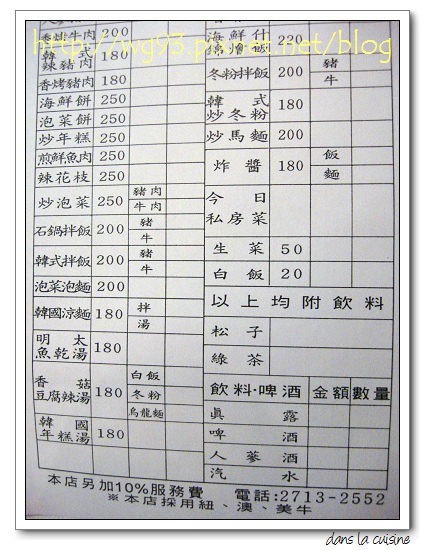 香烤牛肉 200
韓式辣豬肉 180
香烤豬肉 180
海鮮餅 250
泡菜餅 250
炒年糕 250
煎鮮魚肉 250
辣花枝 250
炒泡菜 250 豬肉 牛肉
石鍋拌飯 200 豬 牛
韓式拌飯 200 豬 牛
泡菜泡麵 200
韓國涼麵 180 拌 湯
明太魚乾湯 180
香菇豆腐辣湯 180 白飯 冬粉 烏龍麵
韓國年糕湯 180
海鮮什錦燴飯 220
冬粉拌飯 200 豬 牛
韓式炒冬粉 180
炒馬麵 200
炸醬 180 飯 麵
今日私房菜
生菜 50
白飯 20
以上均附飲料
松子
綠茶
飲料·啤酒 金額 數量
真露
啤酒
人蔘酒
汽水
本店另加10%服務費 電話:2713-2552
※本店採用紐、澳、美牛
dans la cuisine